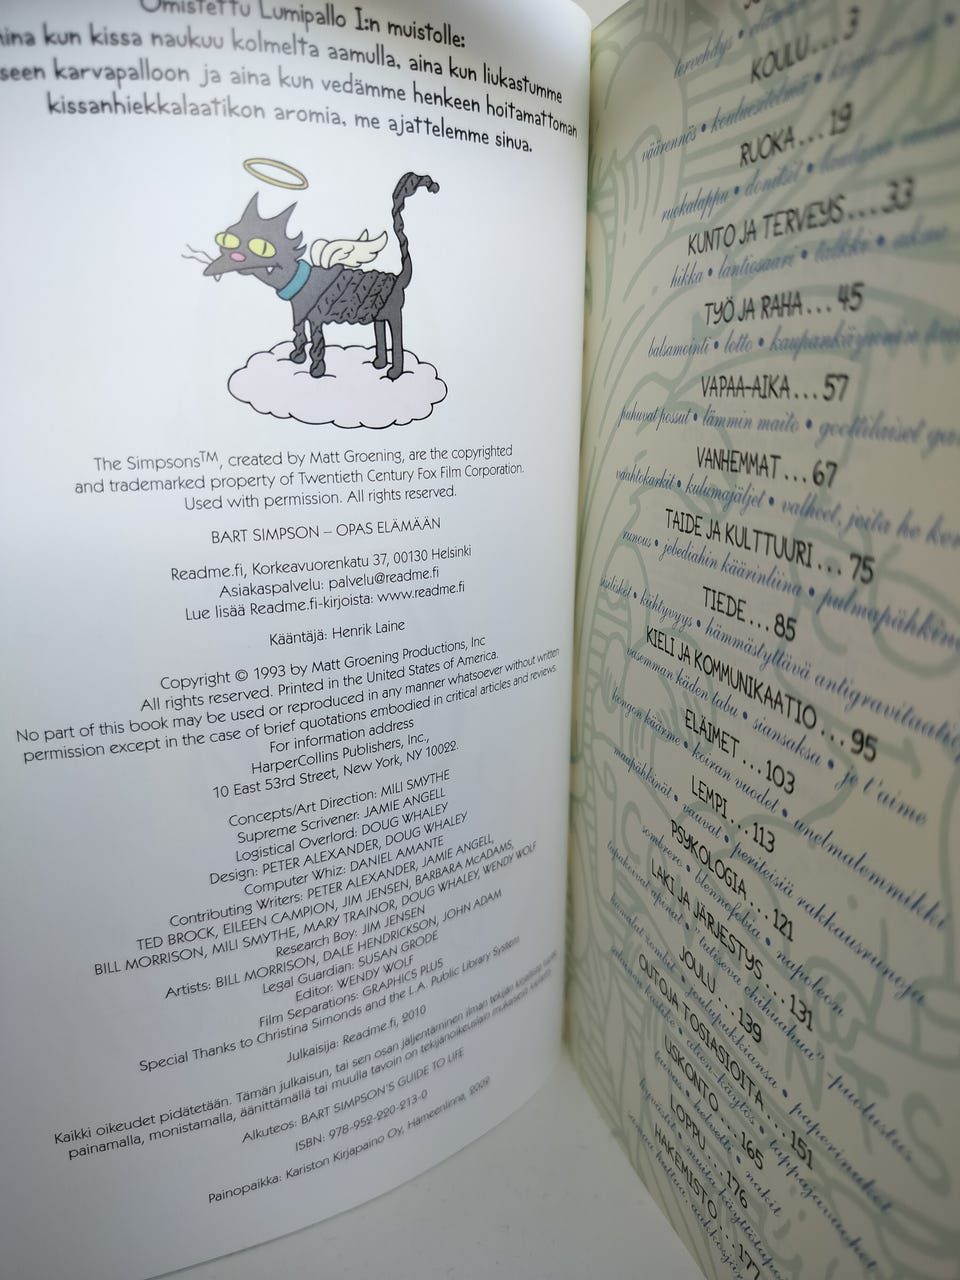 Omistettu Lumipallo I:n muistolle:
aina kun kissa naukuu kolmelta aamulla, aina kun liukastumme
seen karvapalloon ja aina kun vedämme henkeen hoitamattoman
kissanhiekkalaatikon aromia, me ajattelemme sinua.
The Simpsons™, created by Matt Groening, are the copyrighted
and trademarked property of Twentieth Century Fox Film Corporation.
Used with permission. All rights reserved.
BART SIMPSON – OPAS ELÄMÄÄN
Readme.fi, Korkeavuorenkatu 37, 00130 Helsinki
Asiakaspalvelu: palvelu@readme.fi
Lue lisää Readme.fi-kirjoista: www.readme.fi
Kääntäjä: Henrik Laine
Copyright © 1993 by Matt Groening Productions, Inc
All rights reserved. Printed in the United States of America.
No part of this book may be used or reproduced in any manner whatsoever without written
permission except in the case of brief quotations embodied in critical articles and reviews.
For information address
HarperCollins Publishers, Inc.,
10 East 53rd Street, New York, NY 10022.
Concepts/Art Direction: MILI SMYTHE
Supreme Scrivener: JAMIE ANGELL
Logistical Overlord: DOUG WHALEY
Design: PETER ALEXANDER, DOUG WHALEY
Computer Whiz: DANIEL AMANTE
Contributing Writers: PETER ALEXANDER, JAMIE ANGELL,
TED BROCK, EILEEN CAMPION, JIM JENSEN, BARBARA McADAMS,
BILL MORRISON, MILI SMYTHE, MARY TRAINOR, DOUG WHALEY, WENDY WOLF
Research Boy: JIM JENSEN
Artists: BILL MORRISON, DALE HENDRICKSON, JOHN ADAM
Legal Guardian: SUSAN GRODE
Editor: WENDY WOLF
Film Separations: GRAPHICS PLUS
Special Thanks to Christina Simonds and the L.A. Public Library System
Julkaisija: Readme.fi, 2010
Kaikki oikeudet pidätetään. Tämän julkaisun, tai sen osan jäljentäminen ilman tekijän kirjallista lupaa
painamalla, monistamalla, äänittämällä tai muulla tavoin on tekijänoikeuslain mukaisesti kielletty.
Alkuteos: BART SIMPSON'S GUIDE TO LIFE
ISBN: 978-952-220-213-0
Painopaikka: Kariston Kirjapaino Oy, Hämeenlinna, 2009
tervehdys •
KOULU...3
väärennös • kouluesitelmä •
RUOKA...19
ruokalappu • donitsit •
KUNTO JA TERVEYS...33
hikka • lantiosaari • tulkki •
TYÖ JA RAHA...45
balsamointi • lotto • kaupankäynnin
VAPAA-AIKA...57
puhuvat possut • lämmin maito • goottilaiset
VANHEMMAT...67
vaahtokarkit • kulumajäljet • valheet, joita he
TAIDE JA KULTTUURI...75
runous • jebediahin käärinliina • pulmapähkinä
TIEDE...85
sisiliskot • kiihtyvyys • hämmästyttävä antigravitaatio
KIELI JA KOMMUNIKAATIO...95
vasemman käden tabu • siansaksa • je t'aime
ELÄIMET...103
kongon käärme • koiran vuodet • unelmalemmikki
LEMPI...113
maapähkinät • vauvat • periteisiä rakkausrunoja
PSYKOLOGIA...121
sombrero • blennofobia • napoleon
LAKI JA JÄRJESTYS...131
"tuliseva chihuahua" -puolustus
JOULU...139
joulupukkiansa • paperinuket
OUTOJA TOSIASIOITA...151
alien-käytös • tappajavauhet
USKONTO...165
taivas • helvetti • nakit
LOPPU...176
HAKEMISTO...177